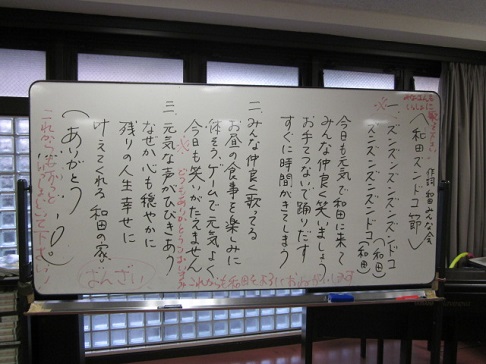 みなさんもいっしょに歌って下さい
〈和田ズンドコ節〉
作詞 和田みんな会
一、ズンズンズンズンズンドコ（和田）
※ズンズンズンズンドコ（和田）
今日も元気で和田に来て
みんな仲良く笑いましょう
お手てつないで踊りだす
すぐに時間がきてしまう
二、みんな仲良く歌ってる
お昼の食事を楽しみに
体そう、ゲームで元気よく
今日も笑いがたえません
※どうもありがとうございます
三、元気な声がひびきあう
なぜか心も穏やかに
残りの人生幸せに
叶えてくれる 和田の家
ばんざい
（ありがとう
これからも和田を